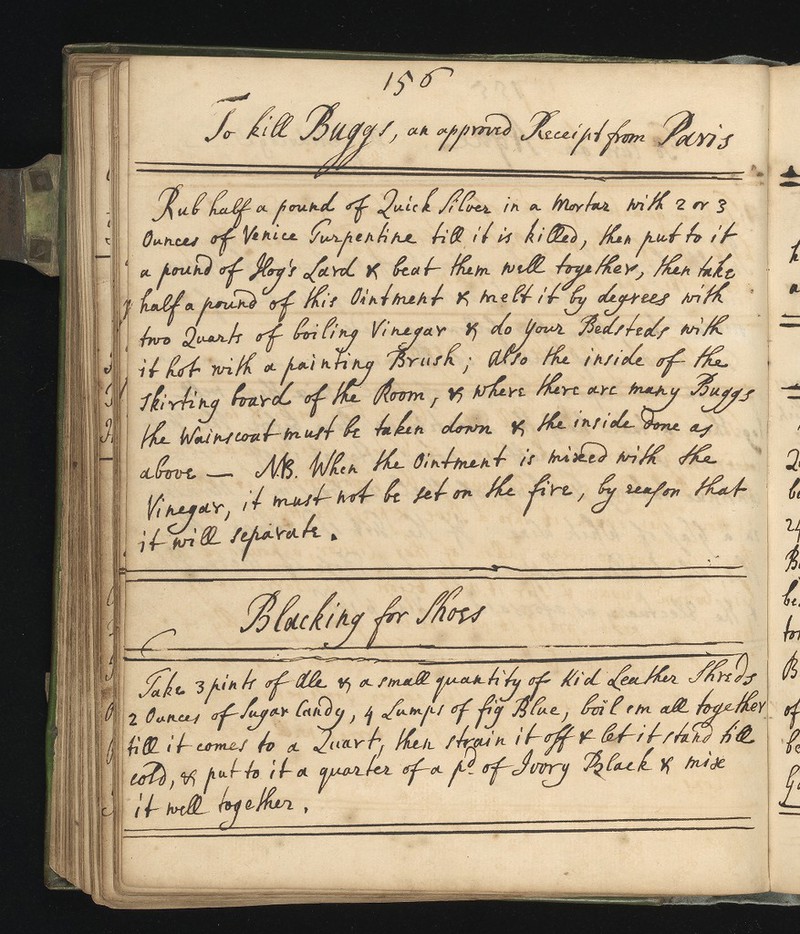 156
To kill Buggs, an approved Receipt from Paris
Rub half a pound of Quick Silver in a Mortar with 2 or 3
Ounces of Venice Turpentine till it is killed, then put to it
a pound of Hog's Lard & beat them well together, then take
half a pound of this Ointment & melt it by degrees with
two Quarts of boiling Vinegar & do your Bedsteds with
it hot with a painting Brush; Also the inside of the
skirting board of the Room, & where there are many Buggs
the Wainscoat must be taken down & the inside done as
above — N.B. When the Ointment is mixed with the
Vinegar, it must not be set on the fire, by reason that
it will separate.
Blacking for Shoes
Take 3 pints of Ale & a small quantity of Kid Leather Shreds
2 Ounces of Sugar Candy, 4 Lumps of fig Blue, boil em all together
till it comes to a Quart, then strain it off & let it stand till
cold, & put to it a quarter of a pd of Ivory Black & mix
it well together.